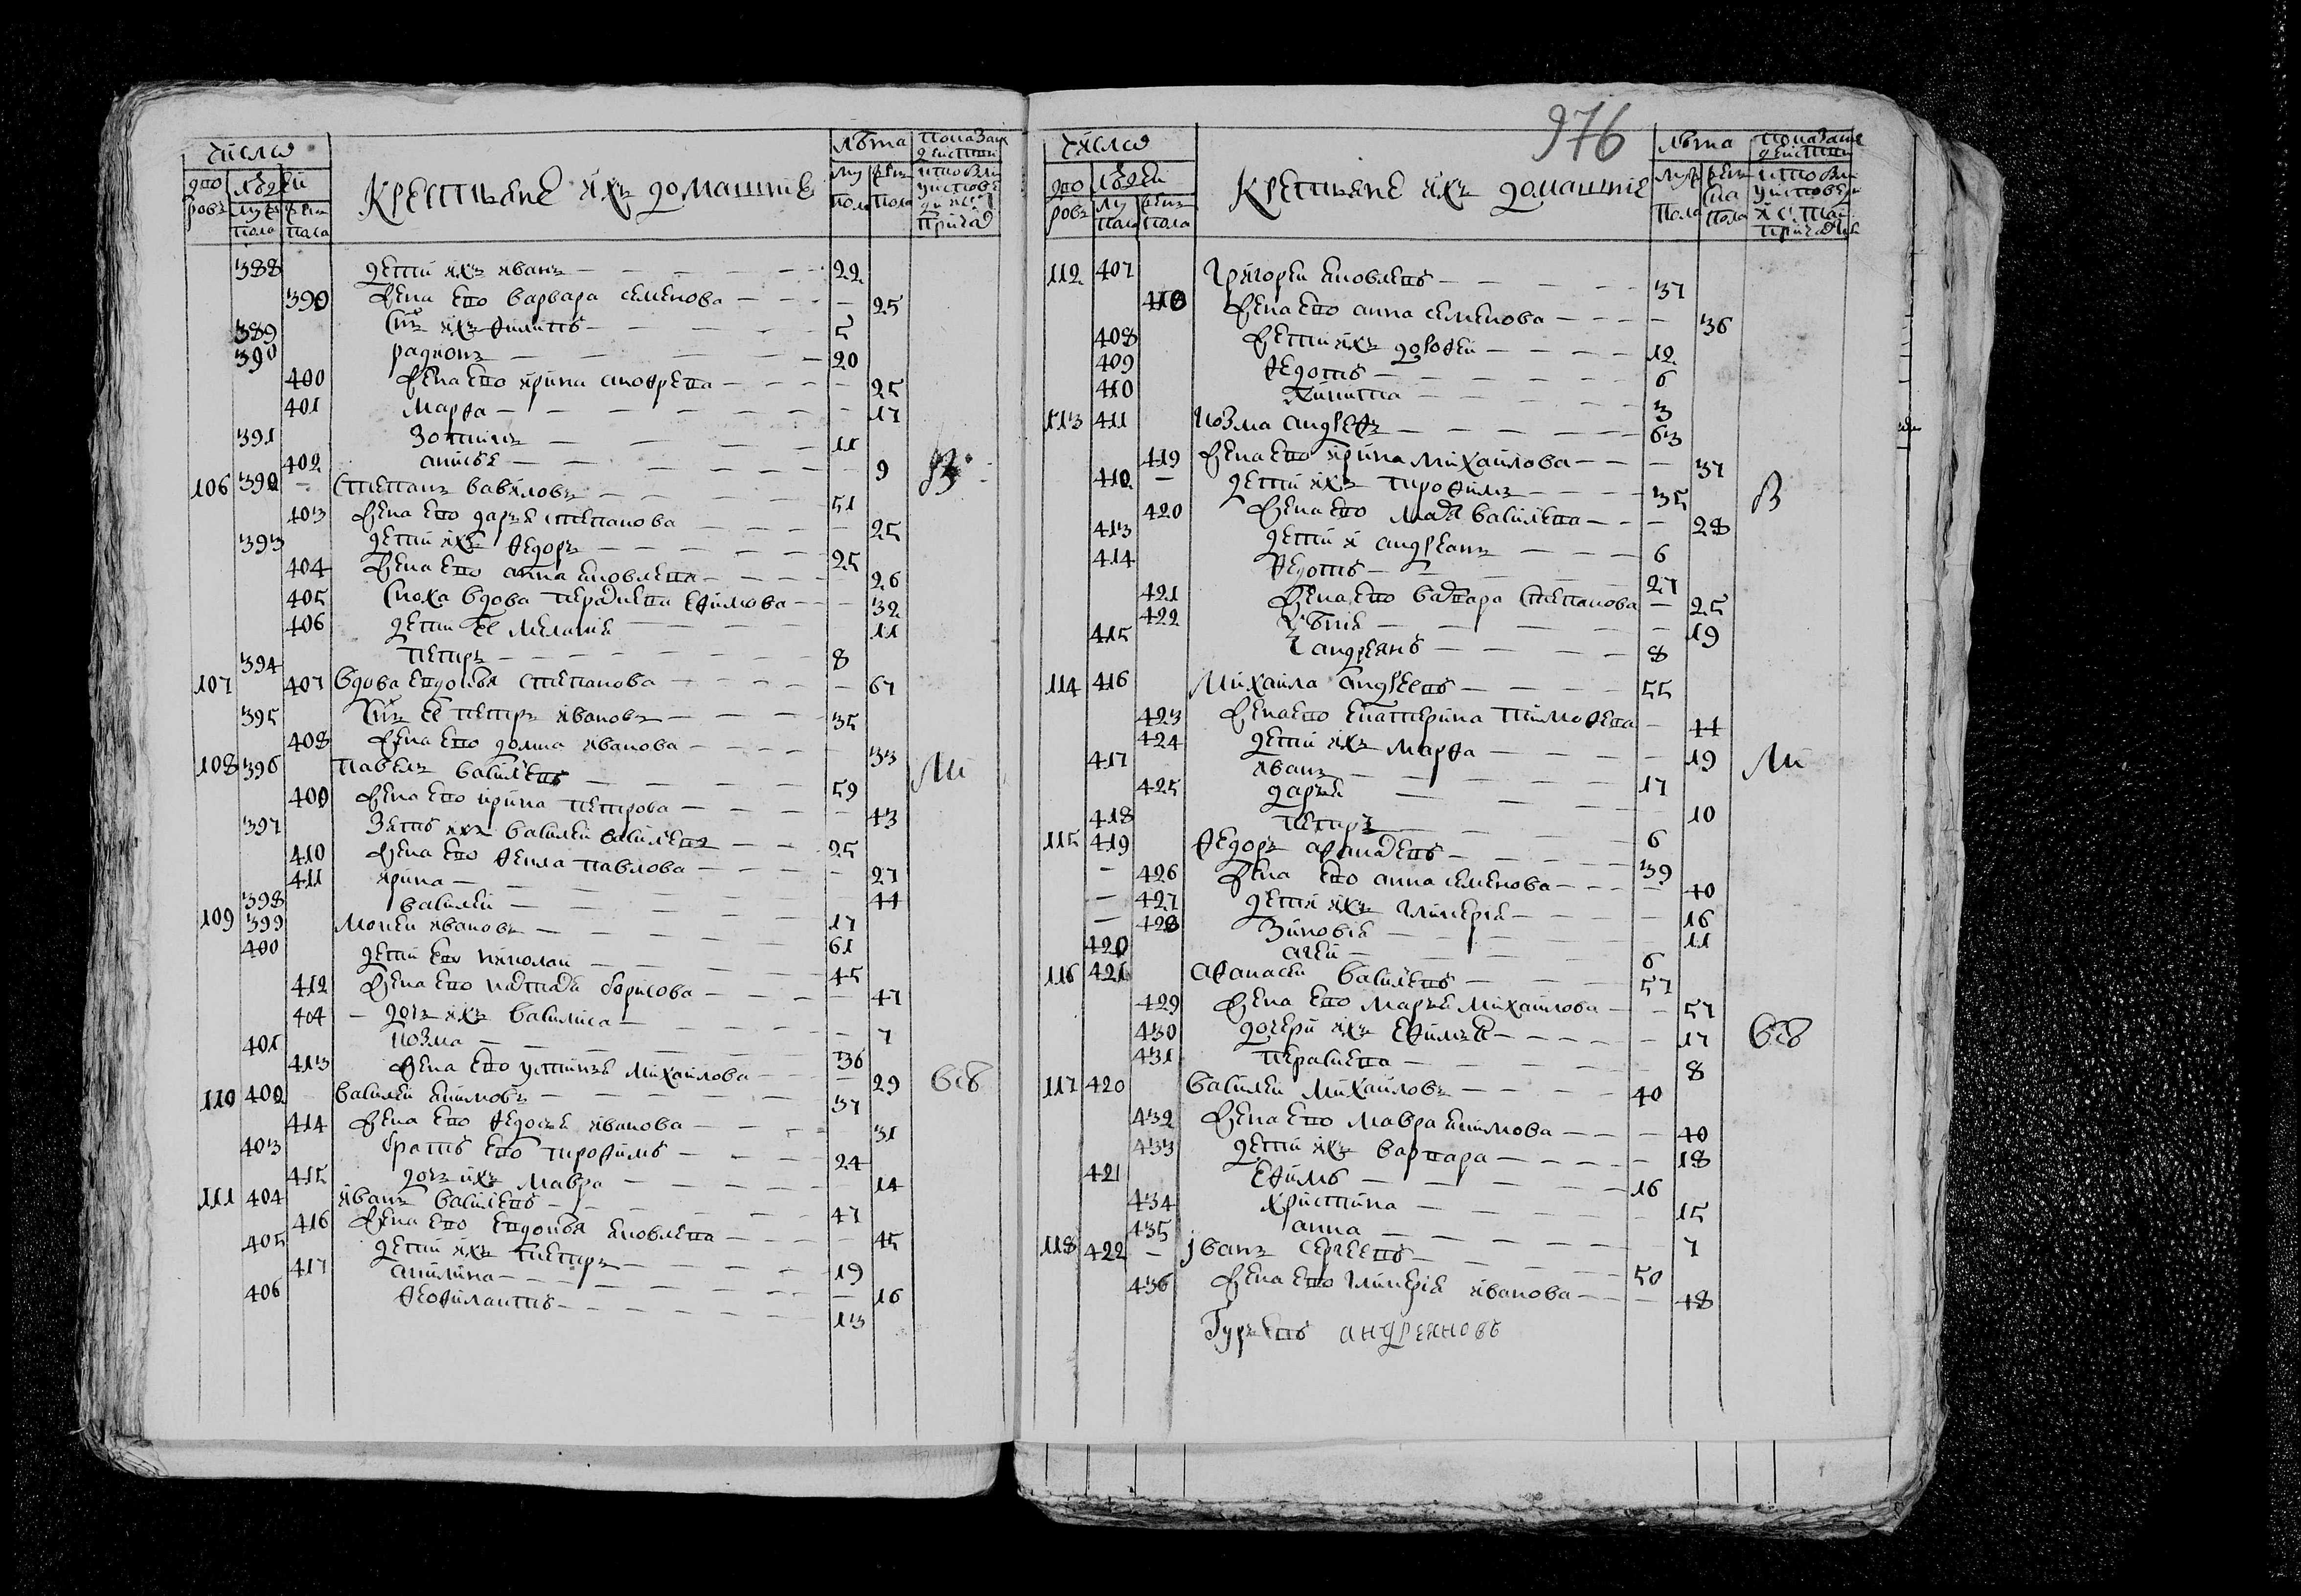 976
числа
лѣта
дворовъ
людей
Крестьяне ихъ домашние
388 дети ихъ иванъ 22
399 жена ево варвара семенова 25
389 снъ ихъ филипъ 5
390 радионъ 20
400 жена ево ирина анофрева 25
401 марфа 17
391 зотикъ 11
402 анисья 9
106 392 степанъ вавиловъ 51
403 жена ево дарья степанова 25
393 дети ихъ федоръ 25
404 жена ево анна яковлева 26
405 сноха вдова ефимова 32
406 дети ее мелания 11
394 петръ 8
107 407 вдова евдокия степанова 67
395 снъ ее петръ ивановъ 35
408 жена ево домна иванова 33
108 396 павелъ василевъ 59
409 жена ево ирина петрова 43
397 зять ихъ василей василевъ 25
410 жена ево фекла павлова 27
411 ирина 44
398 василей 17
109 399 мокей ивановъ 61
400 дети ево николай 45
412 жена ево борисова 47
404 дочь ихъ василиса 7
401 козма 36
413 жена ево устинья михаилова 29
110 402 василей екимовъ 37
414 жена ево федосья иванова 31
403 братъ ево трофимъ 24
415 дочь ихъ мавра 14
111 404 иванъ василевъ 47
416 жена ево евдокия яковлева 45
405 дети ихъ петръ 19
417 акилина 16
406 феофилактъ 13
числа
лѣта
дворовъ
людей
Крестьяне ихъ домашние
112 407 григорей яковлевъ 37
418 жена ево анна семенова 36
408 дети ихъ дорофей 12
409 федотъ 6
410 никита 3
113 411 козма андреевъ 63
419 жена ево ирина михайлова 37
412 дети ихъ трофимъ 35
420 жена ево василева 28
413 дети и андреянъ 6
414 федотъ 27
421 жена ево варвара степанова 25
422 19
415 андреянъ 8
114 416 михаила андреевъ 55
423 жена ево екатерина тимофева 44
424 дети ихъ марфа 19
417 иванъ 17
425 дарья 10
418 петръ 6
115 419 федоръ афанасевъ 39
426 жена ево анна семенова 40
427 дети ихъ гликерия 16
428 зиновия 11
420 6
116 421 афанасей василевъ 57
429 жена ево марья михаилова 57
430 дочери ихъ ефимья 17
431 8
117 420 василей михайловъ 40
432 жена ево мавра екимова 40
433 дети ихъ варвара 18
421 ефимъ 16
434 христина 15
435 анна 7
118 422 иванъ сергеевъ 50
436 жена ево гликерия иванова 48
андреяновъ